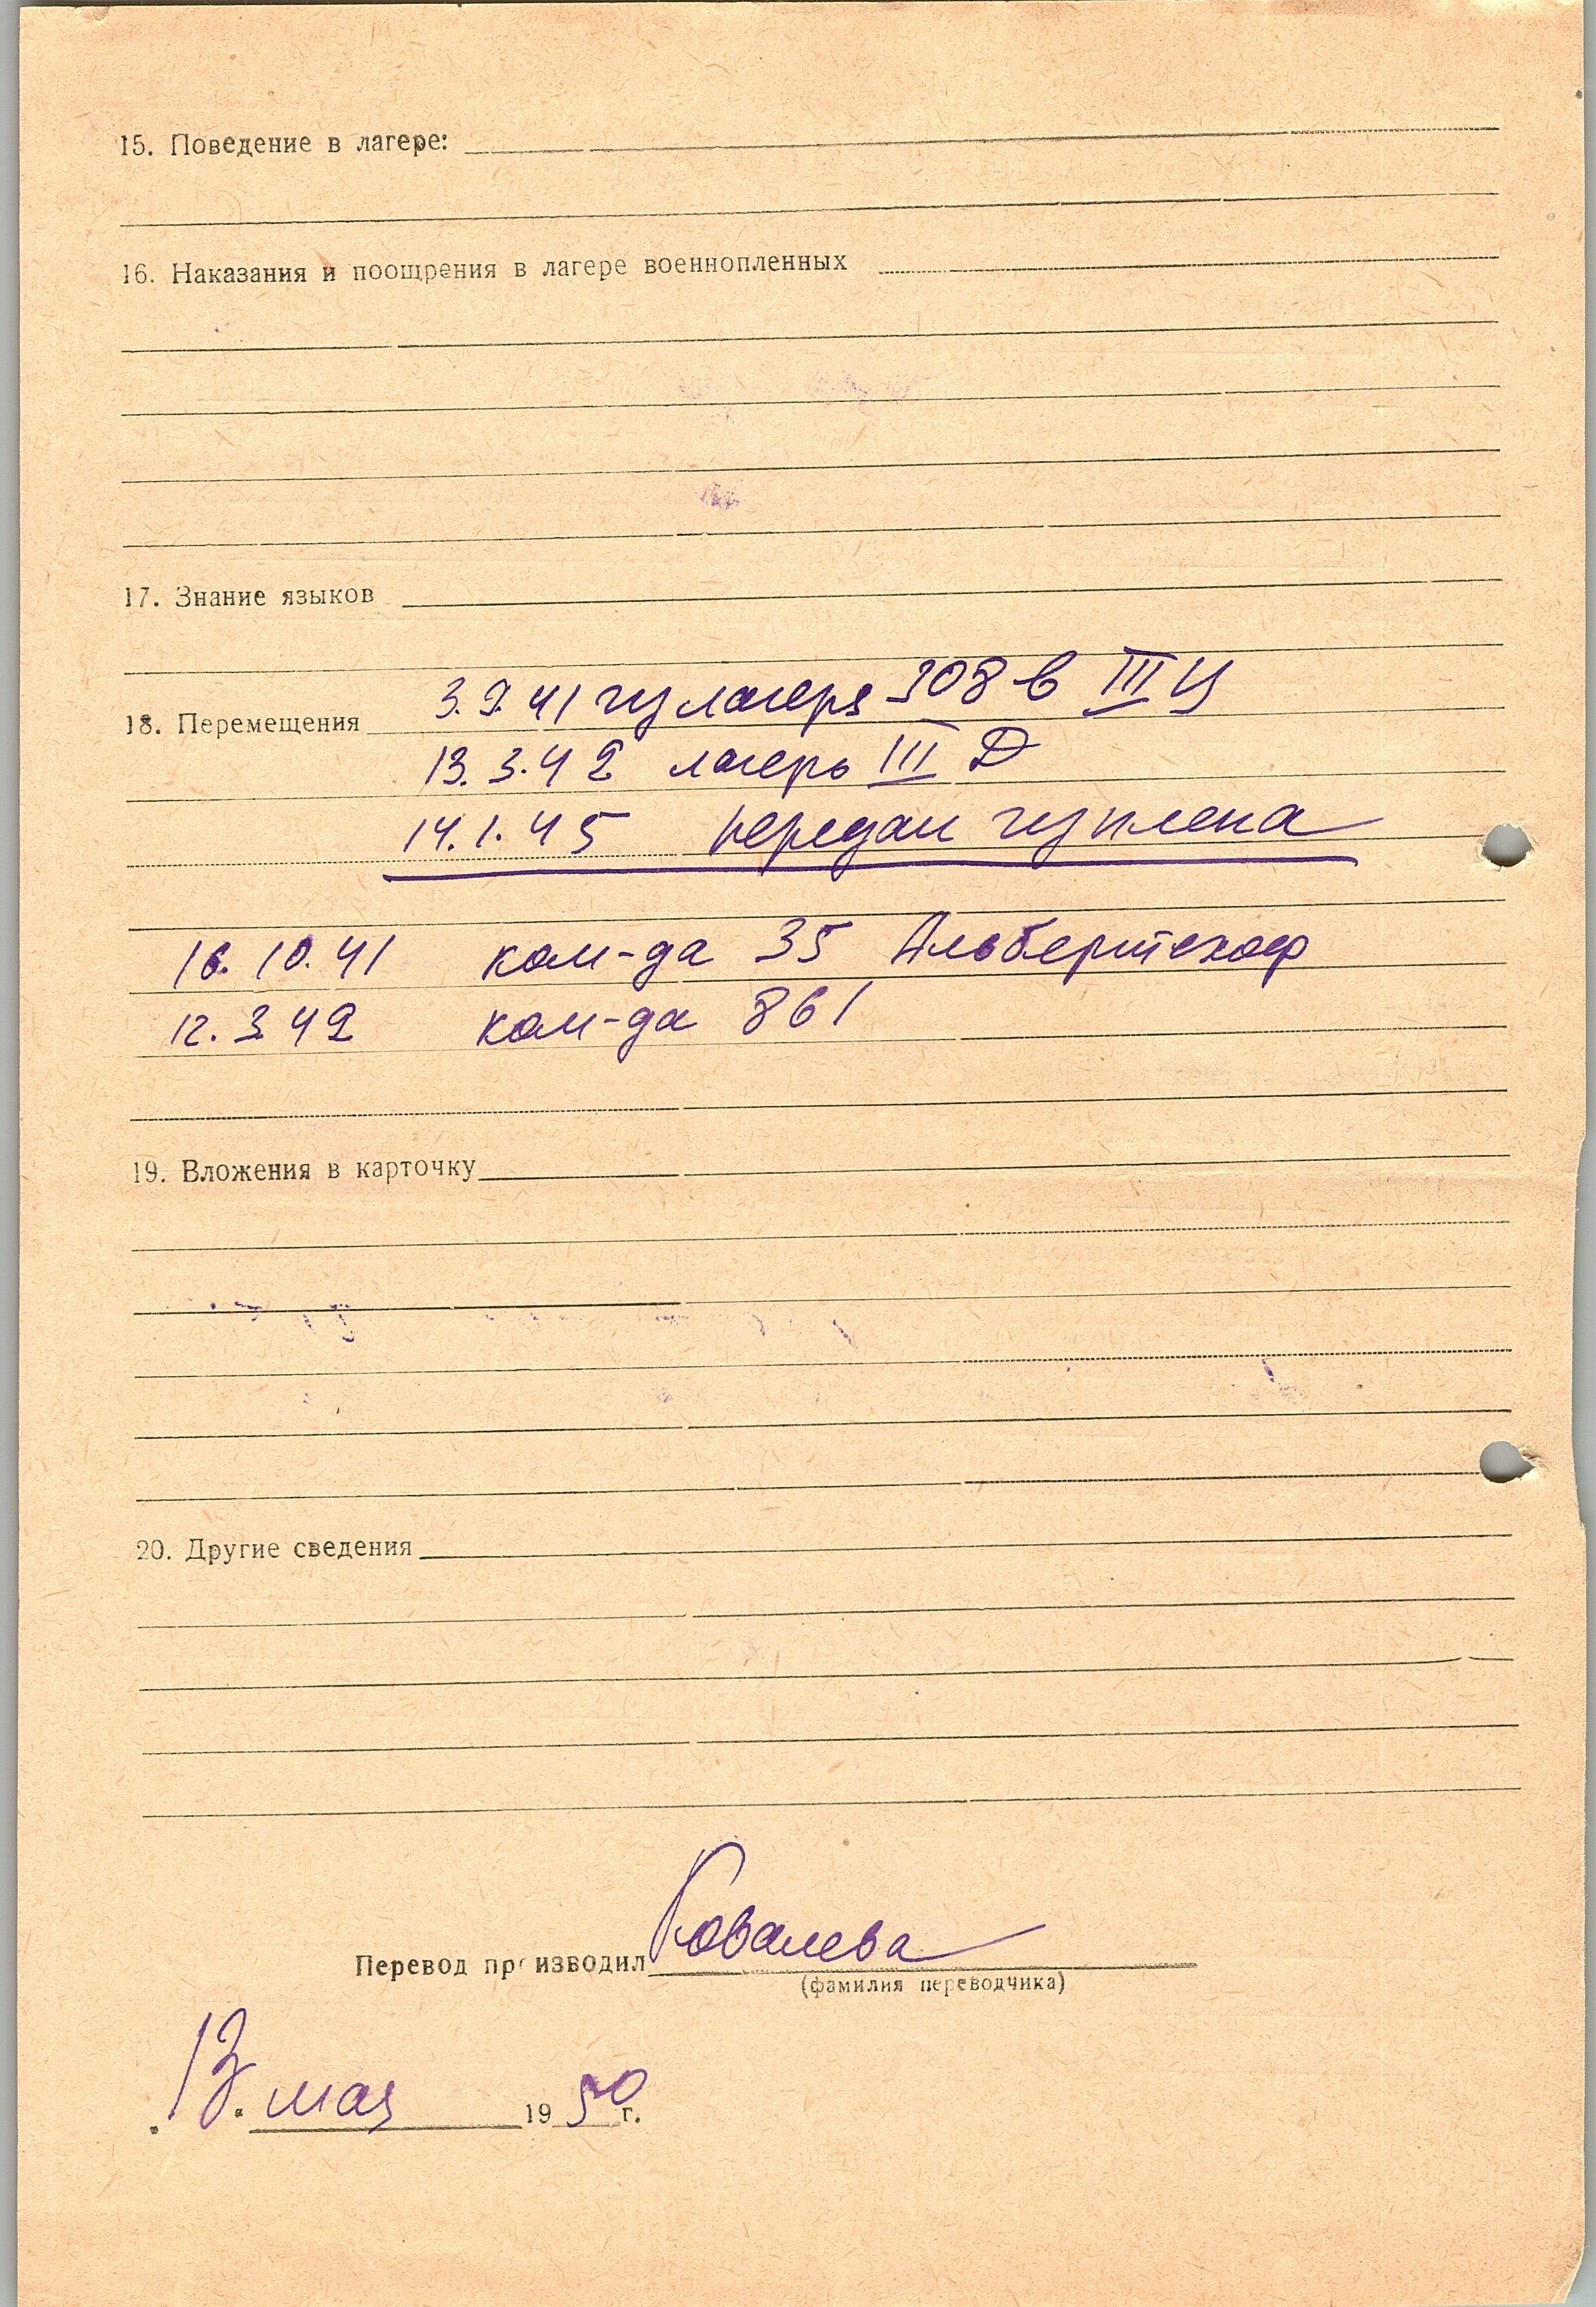 15. Поведение в лагере:
16. Наказания и поощрения в лагере военнопленных
17. Знание языков
18. Перемещения 3.9.41 из лагеря 308 в III Ц
13.3.42 лагерь III Д
14.1.45 передан из плена
16.10.41 ком-да 35 Альбертсхоф
12.3.42 ком-да 861
19. Вложения в карточку
20. Другие сведения
Перевод производил Ковалева
(фамилия переводчика)
"13" мая 1950 г.